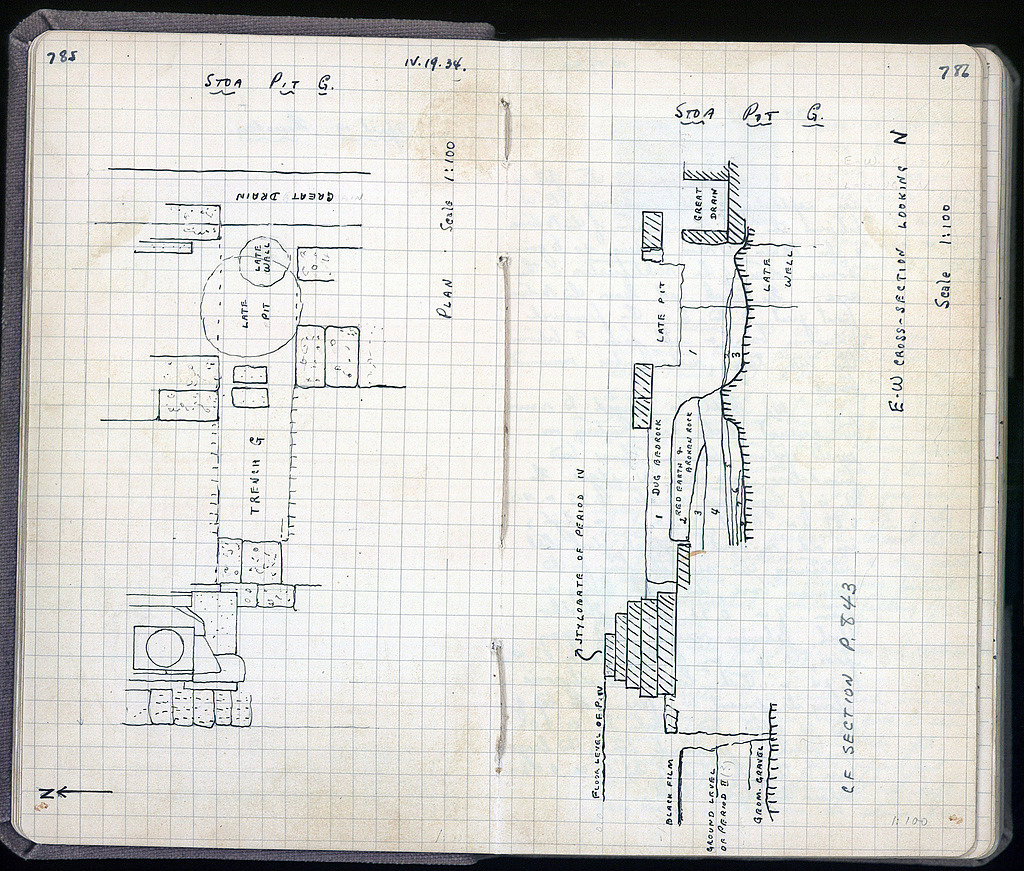 785
IV.19.34.
STOA PIT G.
GREAT DRAIN
LATE
WELL
LATE
PIT
TRENCH G
PLAN Scale 1:100
N
786
STOA PIT G.
GREAT
DRAIN
LATE
WELL
LATE PIT
1
2
3
1 DUG BEDROCK
2 RED EARTH &
BROKEN ROCK
3
4
5
6
7
STYLOBATE OF PERIOD IV
FLOOR LEVEL OF P. IV
BLACK FILM
GROUND LEVEL
OF PERIOD II (?)
GROM. GRAVEL
E-W CROSS-SECTION LOOKING N
Scale 1:100
CF SECTION P. 843
1:100